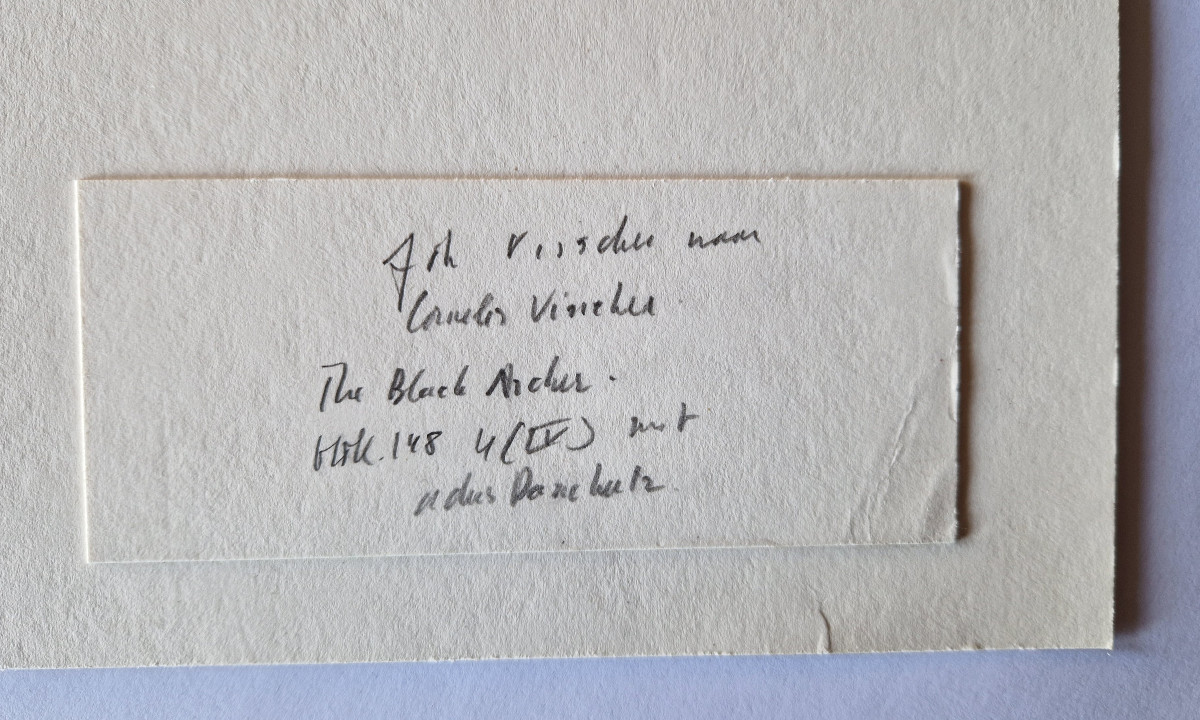 Joh Visscher naar
Cornelis Visscher.
The Black Archer.
Holl. 148 4(IV) met
adres Danckertz.